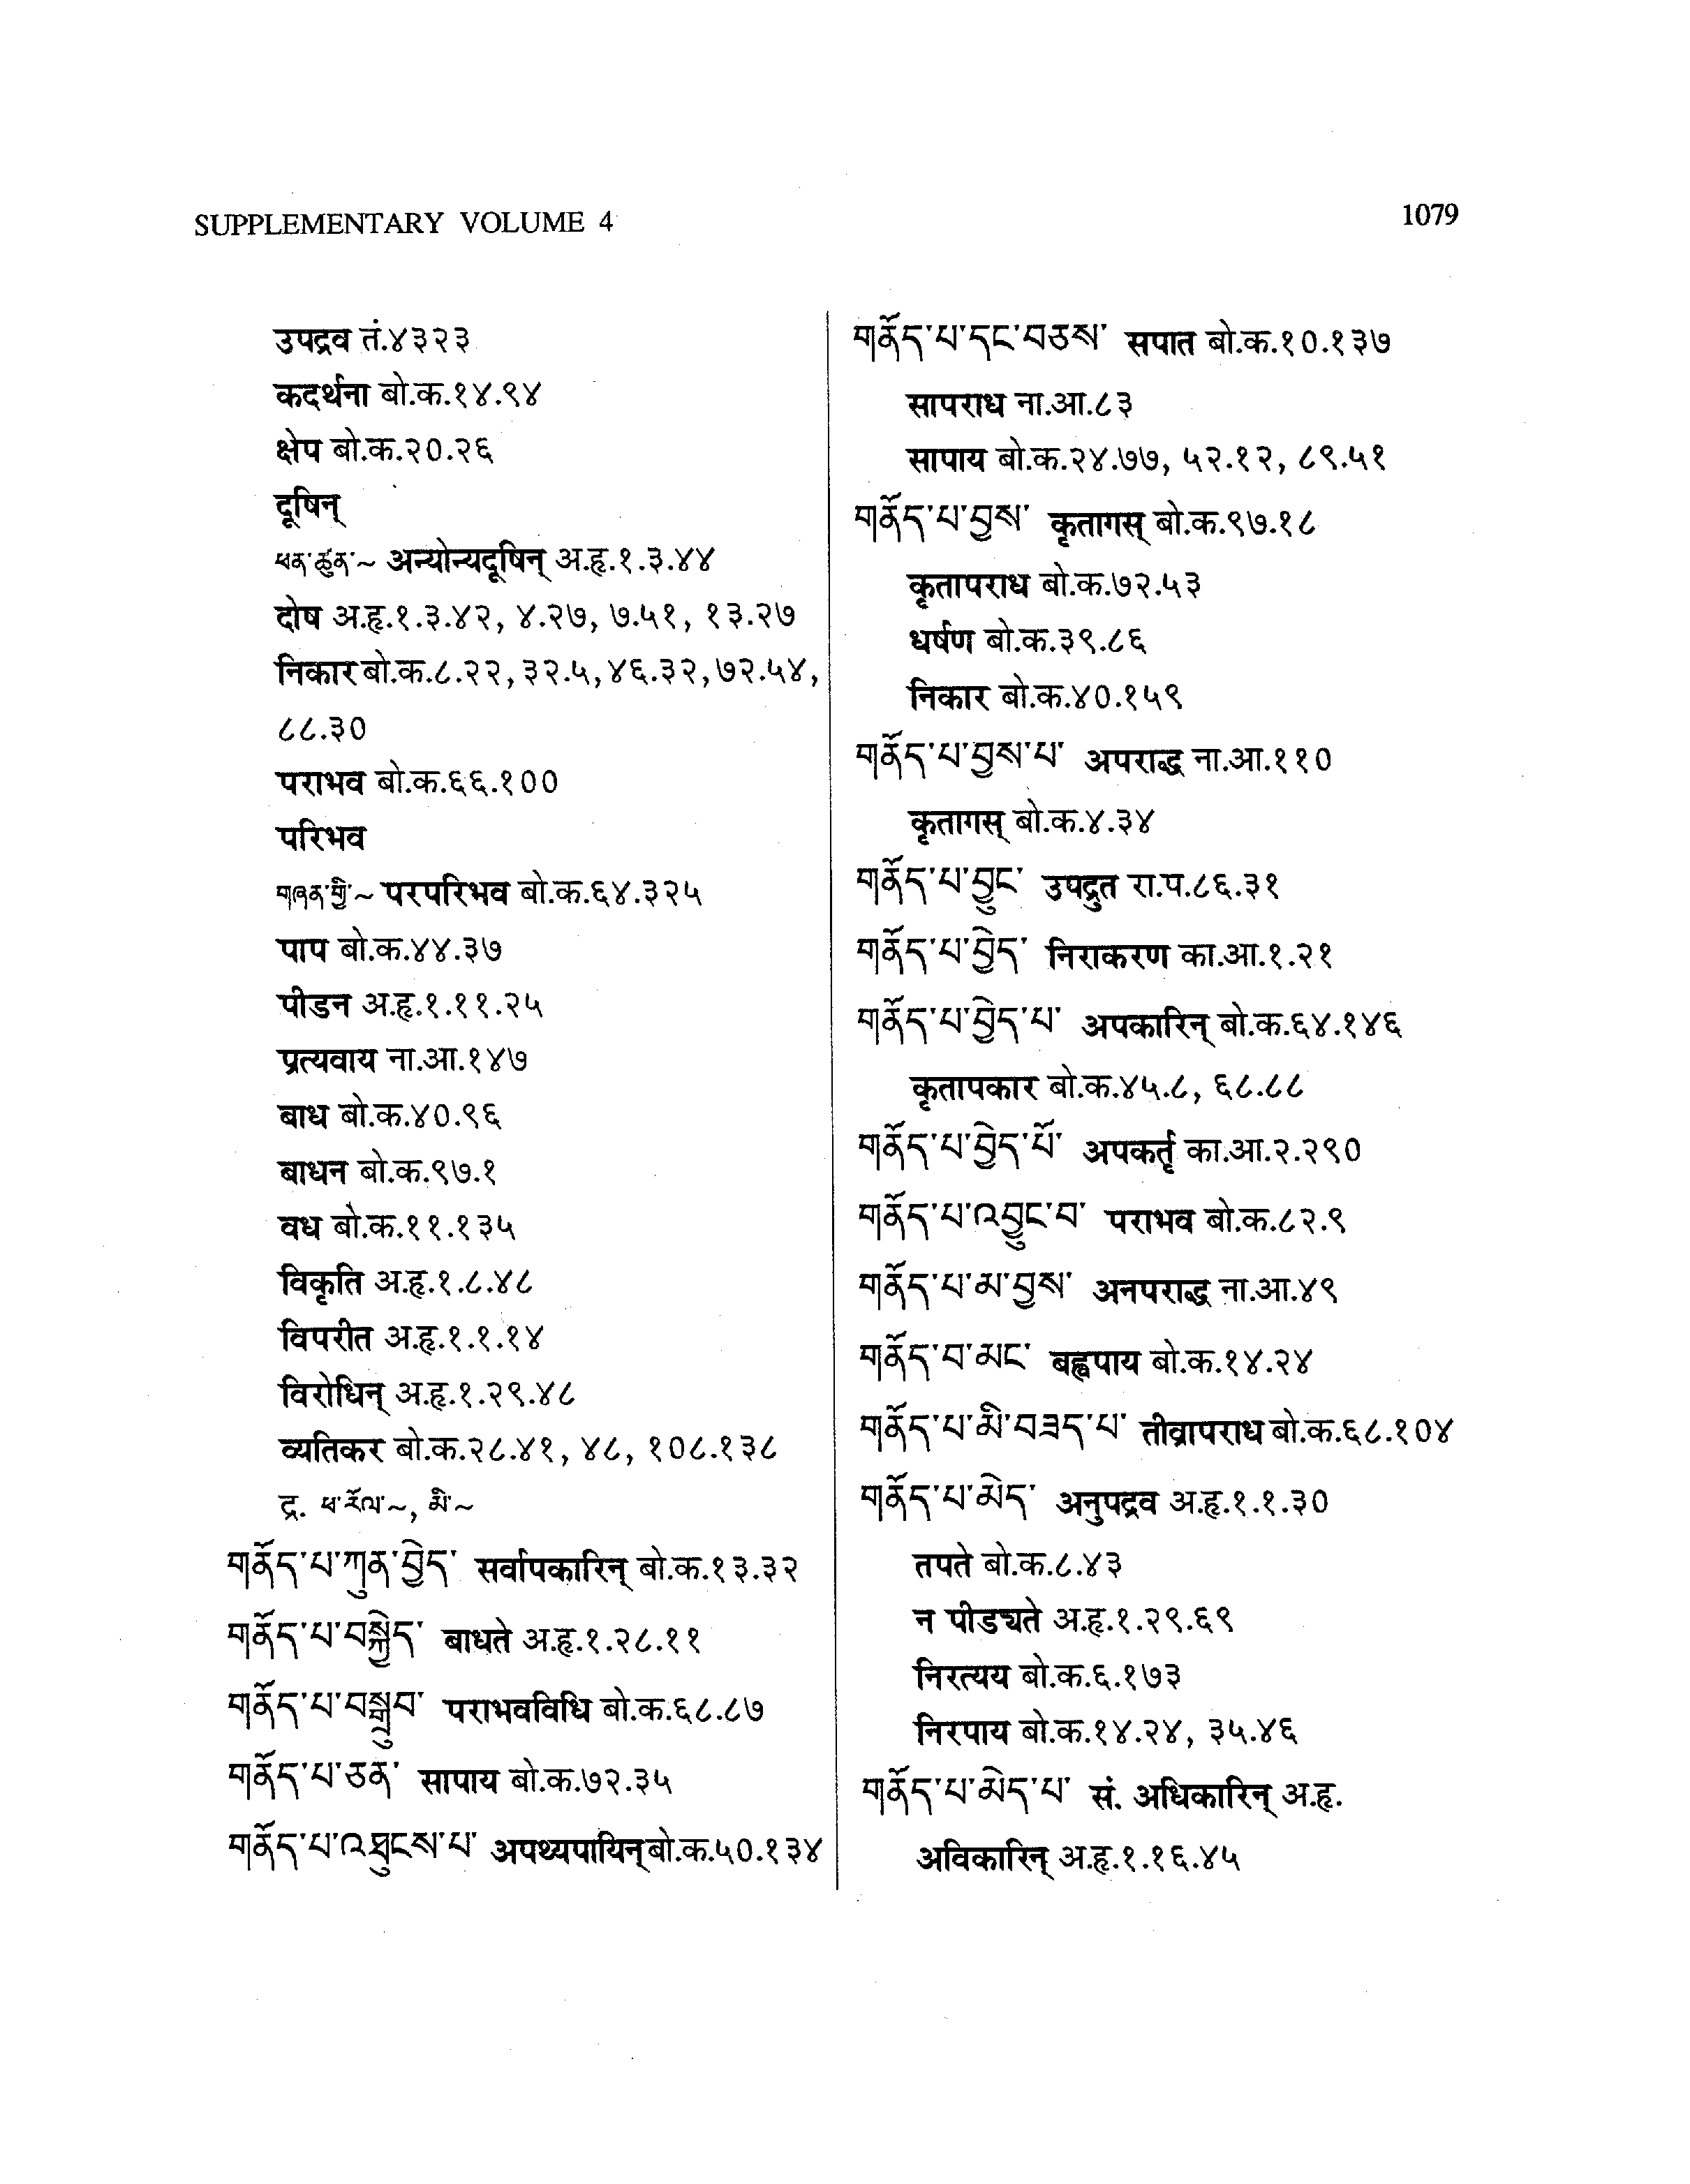 SUPPLEMENTARY VOLUME 4
1079
उपद्रव तं.४३२३
कदर्थना बो.क.१४.९४
क्षेप बो.क.२०.२६
दूषिन्
ཕན་ཚུན་~ अन्योन्यदूषिन् अ.हृ.१.३.४४
दोष अ.हृ.१.३.४२, ४.२७, ७.५१, १३.२७
निकार बो.क.८.२२, ३२.५, ४६.३२, ७२.५४,
८८.३०
पराभव बो.क.६६.१००
परिभव
གཞན་གྱི་~ परपरिभव बो.क.६४.३२५
पाप बो.क.४४.३७
पीडन अ.हृ.१.११.२५
प्रत्यवाय ना.आ.१४७
बाध बो.क.४०.९६
बाधन बो.क.९७.१
वध बो.क.११.१३५
विकृति अ.हृ.१.८.४८
विपरीत अ.हृ.१.१.१४
विरोधिन् अ.हृ.१.२९.४८
व्यतिकर बो.क.२८.४१, ४८, १०८.१३८
द्र. ཕ་རོལ་~, མི་~
གནོད་པ་ཀུན་བྱེད་ सर्वापकारिन् बो.क.१३.३२
གནོད་པ་བསྐྱེད་ बाधते अ.हृ.१.२८.११
གནོད་པ་བསྒྲུབ་ पराभवविधि बो.क.६८.८७
གནོད་པ་ཅན་ सापाय बो.क.७२.३५
གནོད་པ་འཐུངས་པ་ अपथ्यपायिन् बो.क.५०.१३४
གནོད་པ་དང་བཅས་ सपात बो.क.१०.१३७
सापराध ना.आ.८३
सापाय बो.क.२४.७७, ५२.१२, ८९.५१
གནོད་པ་བྱས་ कृतागस् बो.क.९७.१८
कृतापराध बो.क.७२.५३
धर्षण बो.क.३९.८६
निकार बो.क.४०.१५९
གནོད་པ་བྱས་པ་ अपराद्ध ना.आ.११०
कृतागस् बो.क.४.३४
གནོད་པ་བྱུང་ उपद्रुत रा.प.८६.३१
གནོད་པ་བྱེད་ निराकरण का.आ.१.२१
གནོད་པ་བྱེད་པ་ अपकारिन् बो.क.६४.१४६
कृतापकार बो.क.४५.८, ६८.८८
གནོད་པ་བྱེད་པོ་ अपकर्तृ का.आ.२.२९०
གནོད་པ་འབྱུང་བ་ पराभव बो.क.८२.९
གནོད་པ་མ་བྱས་ अनपराद्ध ना.आ.४९
གནོད་བ་མང་ बह्वपाय बो.क.१४.२४
གནོད་པ་མི་བཟད་པ་ तीव्रापराध बो.क.६८.१०४
གནོད་པ་མེད་ अनुपद्रव अ.हृ.१.१.३०
तपते बो.क.८.४३
न पीड्यते अ.हृ.१.२९.६९
निरत्यय बो.क.६.१७३
निरपाय बो.क.१४.२४, ३५.४६
གནོད་པ་མེད་པ་ सं. अधिकारिन् अ.हृ.
अविकारिन् अ.हृ.१.१६.४५